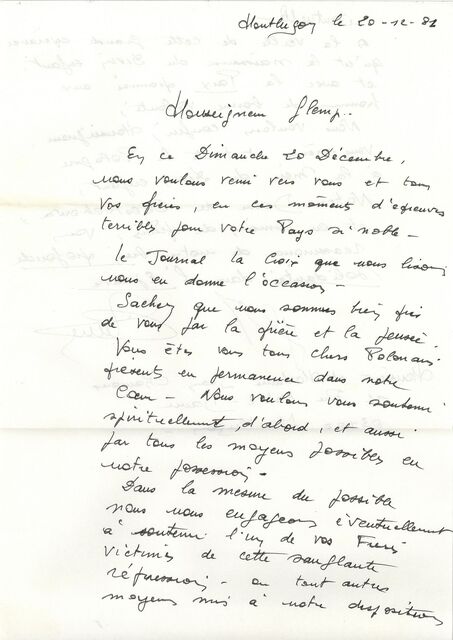 Montluçon le 20-12-81
Monseigneur Glemp.
En ce Dimanche 20 Décembre,
nous voulons venir vers vous et tous
vos frères, en ces moments d'épreuves
terribles pour votre Pays si noble -
Le Journal la Croix que nous lisons
nous en donne l'occasion -
Sachez que nous sommes bien près
de vous par la prière et la pensée.
Vous êtes vous tous chers Polonais
présents en permanence dans notre
Cœur - Nous voulons vous soutenir
spirituellement, d'abord, et aussi
par tous les moyens possibles en
notre possession -
Dans la mesure du possible
nous nous engageons éventuellement
à soutenir l'un de vos Frères
victimes de cette sanglante
répression - ou tout autres
moyens mis à notre disposition